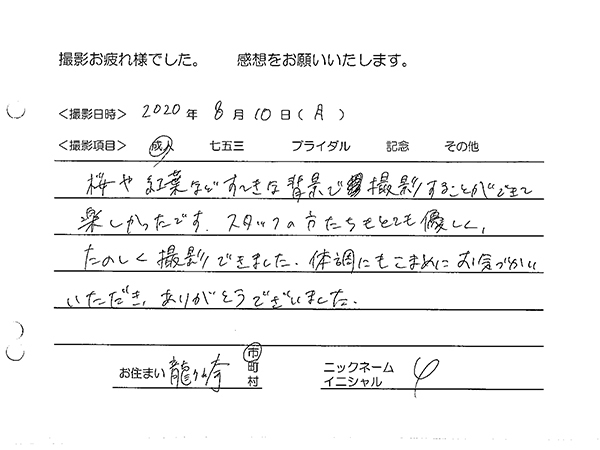 撮影お疲れ様でした。 感想をお願いいたします。
<撮影日時> 2020 年 8 月 10 日 ( 月 )
<撮影項目> 成人 七五三 ブライダル 記念 その他
桜や紅葉などすてきな背景で撮影することができて
楽しかったです. スタッフの方たちもとても優しく,
たのしく撮影できました. 体調にもこまめにお気づかい
いただき, ありがとうございました.
お住まい 龍ヶ崎 市 町 村 ニックネーム イニシャル φ